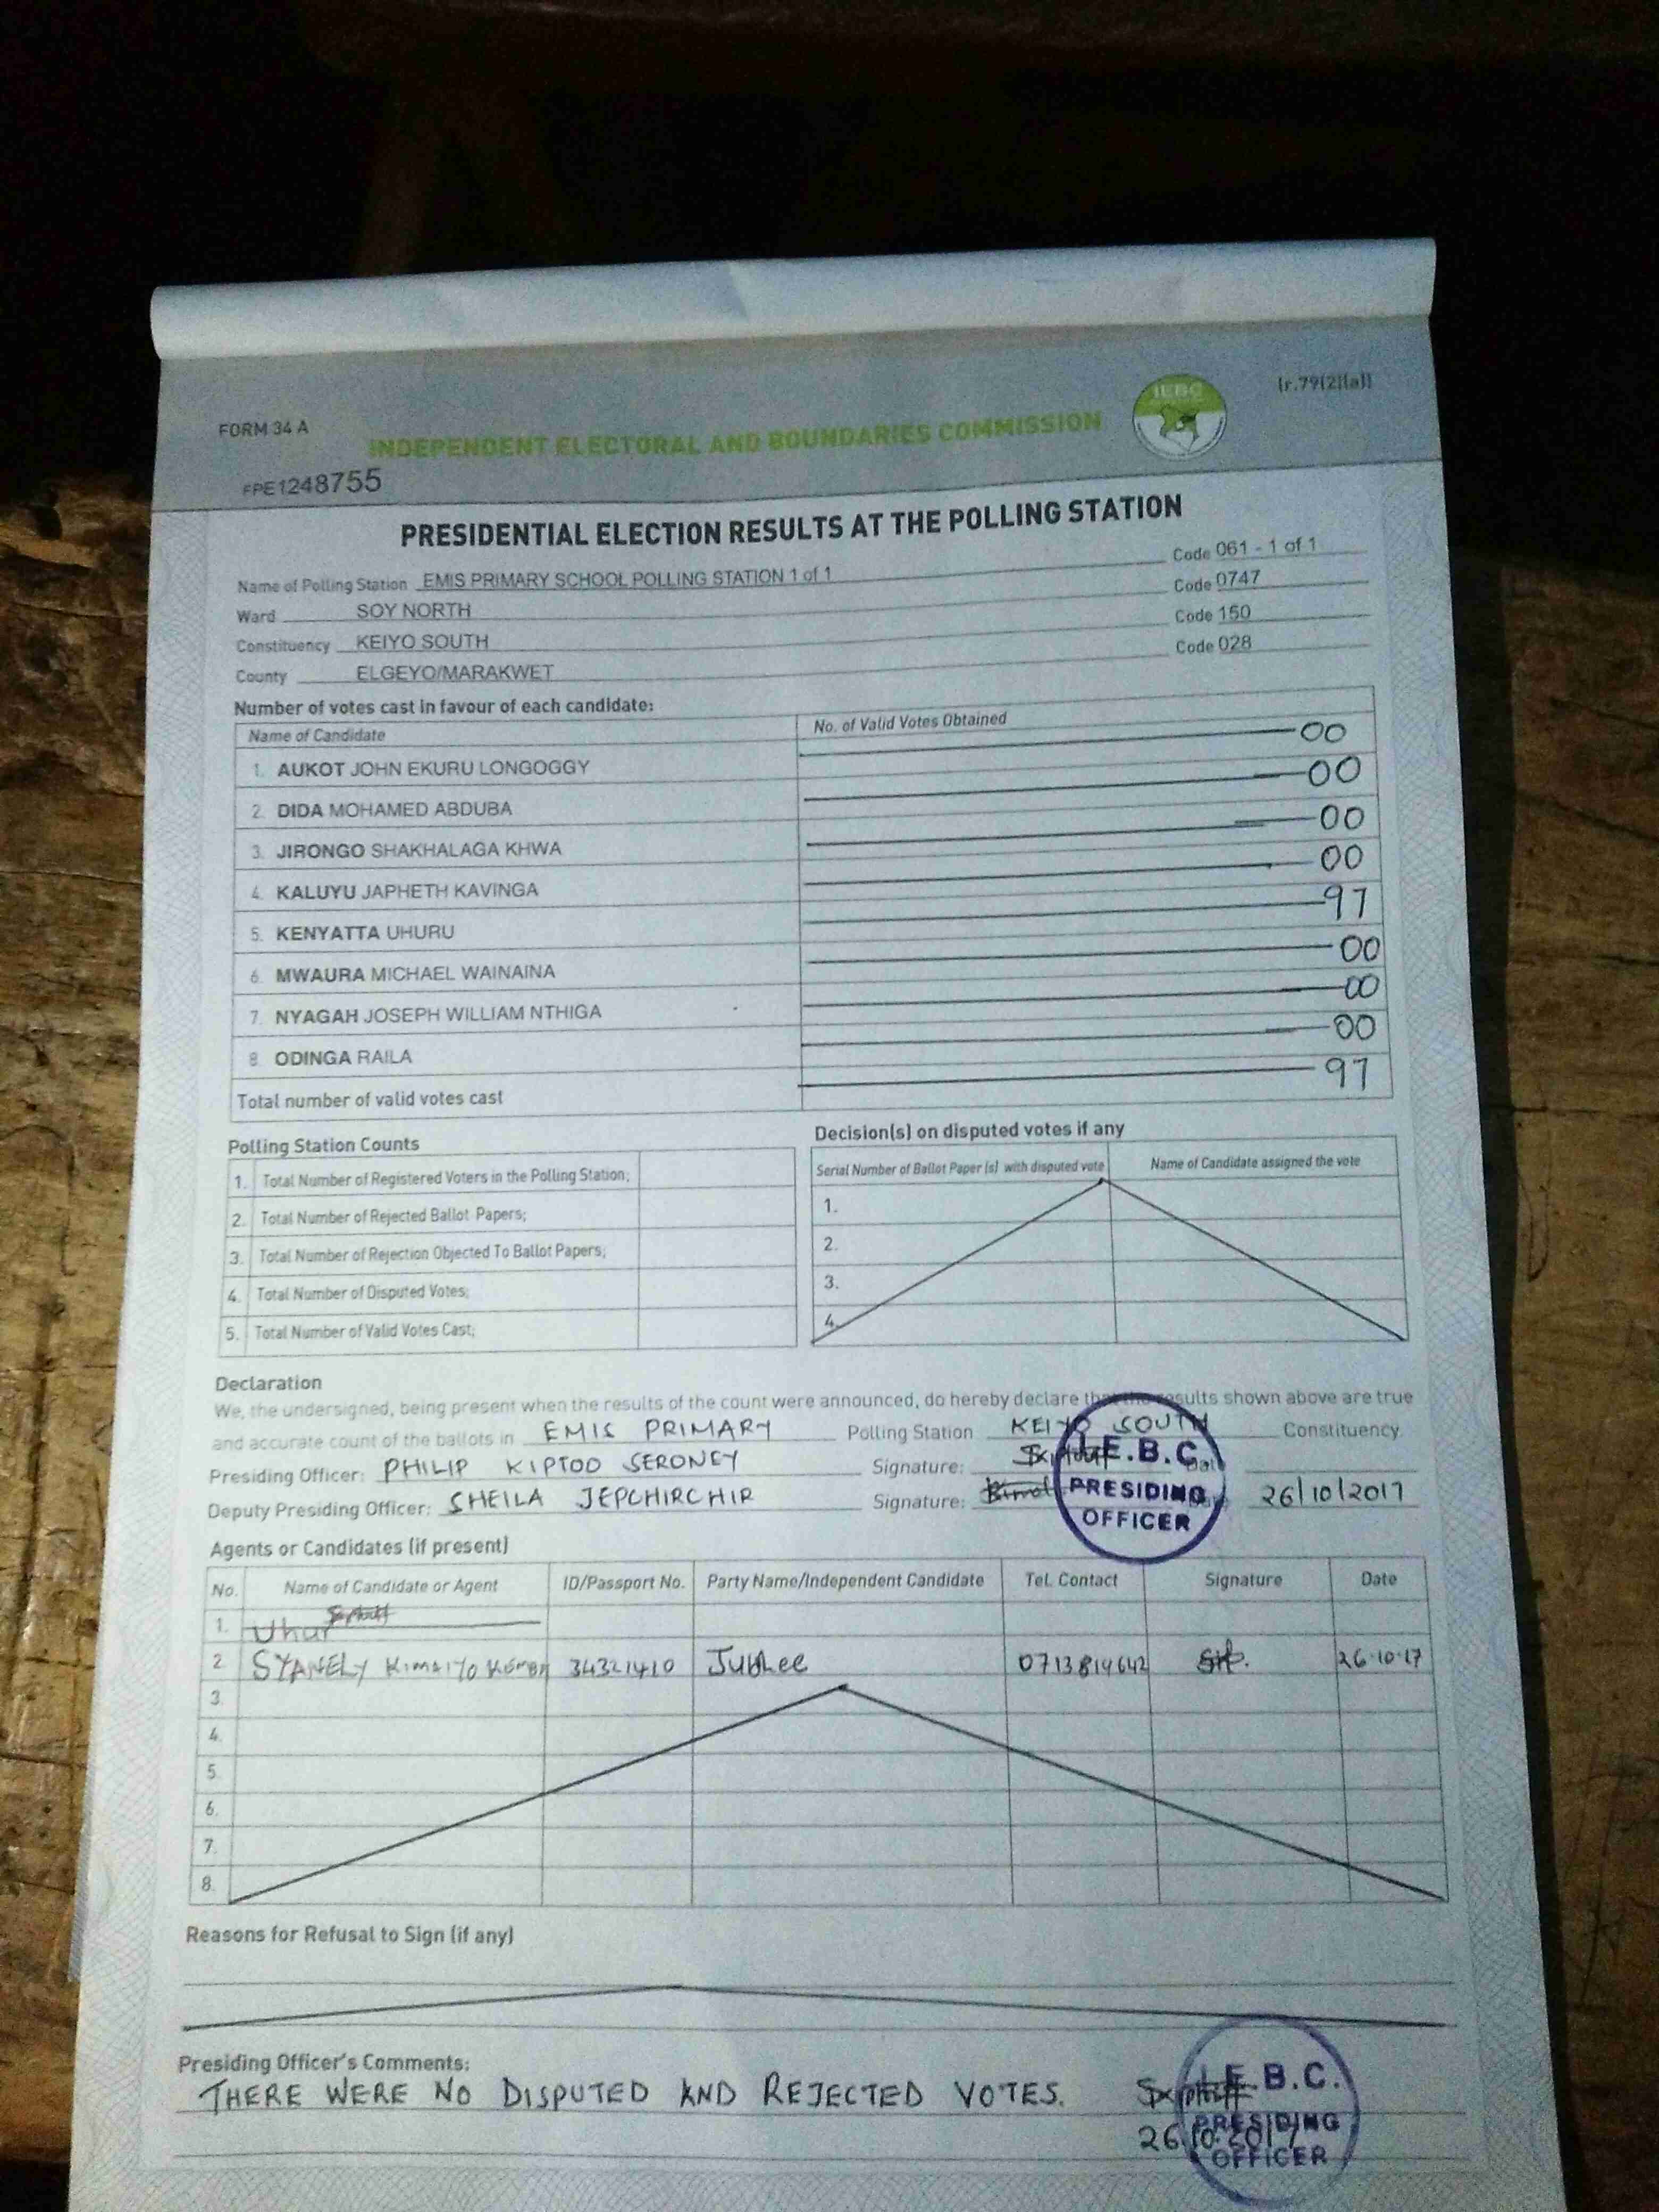 IEBC
(r.79(2)(a))
FORM 34 A
INDEPENDENT ELECTORAL AND BOUNDARIES COMMISSION
FPE1248755
PRESIDENTIAL ELECTION RESULTS AT THE POLLING STATION
Name of Polling Station EMIS PRIMARY SCHOOL POLLING STATION 1 of 1 Code 061 - 1 of 1
Ward SOY NORTH Code 0747
Constituency KEIYO SOUTH Code 150
County ELGEYO/MARAKWET Code 028
Number of votes cast in favour of each candidate:
Name of Candidate No. of Valid Votes Obtained
1. AUKOT JOHN EKURU LONGOGGY 00
2. DIDA MOHAMED ABDUBA 00
3. JIRONGO SHAKHALAGA KHWA 00
4. KALUYU JAPHETH KAVINGA 00
5. KENYATTA UHURU 97
6. MWAURA MICHAEL WAINAINA 00
7. NYAGAH JOSEPH WILLIAM NTHIGA 00
8. ODINGA RAILA 00
Total number of valid votes cast 97
Polling Station Counts
1. Total Number of Registered Voters in the Polling Station;
2. Total Number of Rejected Ballot Papers;
3. Total Number of Rejection Objected To Ballot Papers;
4. Total Number of Disputed Votes;
5. Total Number of Valid Votes Cast;
Decision(s) on disputed votes if any
Serial Number of Ballot Paper (s) with disputed vote Name of Candidate assigned the vote
1.
2.
3.
4.
Declaration
We, the undersigned, being present when the results of the count were announced, do hereby declare that the results shown above are true
and accurate count of the ballots in EMIS PRIMARY Polling Station KEIYO SOUTH Constituency.
Presiding Officer: PHILIP KIPTOO SERONEY Signature: Date
Deputy Presiding Officer: SHEILA JEPCHIRCHIR Signature: Date 26/10/2017
I.E.B.C.
PRESIDING
OFFICER
Agents or Candidates (if present)
No. Name of Candidate or Agent ID/Passport No. Party Name/Independent Candidate Tel. Contact Signature Date
1. Uhur
2. SYANELY KIMAIYO 34321410 Jubilee 0713814642 26.10.17
3.
4.
5.
6.
7.
8.
Reasons for Refusal to Sign (if any)
Presiding Officer's Comments:
THERE WERE NO DISPUTED AND REJECTED VOTES.
26.10.2017
I.E.B.C.
PRESIDING
OFFICER